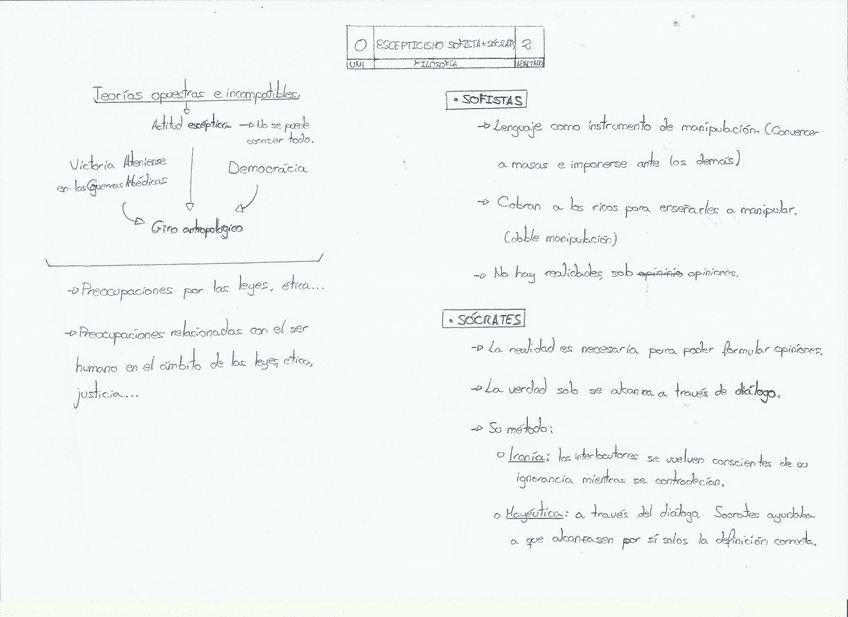 0 ESCEPTICISMO SOFISTA+SÓCRATES 2
UNI FILOSOFÍA APARTADO
Teorías opuestras e incompatibles
Actitud escéptica → No se puede
conocer todo.
Victoria Ateniense
en las Guerras Médicas
Democrácia
Giro antropológico
→ Preocupaciones por las leyes, ética...
→ Preocupaciones relacionadas con el ser
humano en el ámbito de las leyes, etica,
justicia...
• SOFISTAS
→ Lenguaje como instrumento de manipulación. (Convencer
a masas e imponerse ante los demás)
→ Cobran a los ricos para enseñarles a manipular.
(doble manipulación)
→ No hay realidades, solo opininio opiniones.
• SÓCRATES
→ La realidad es necesaria para poder formular opiniones.
→ La verdad solo se alcanza a través de diálogo.
→ Su método:
o Ironía: los interlocutores se vuelven conscientes de su
ignorancia mientras se contradecían.
o Mayéutica: a través del diálogo, Socrates ayudaba
a que alcanzasen por sí solos la definición correcta.